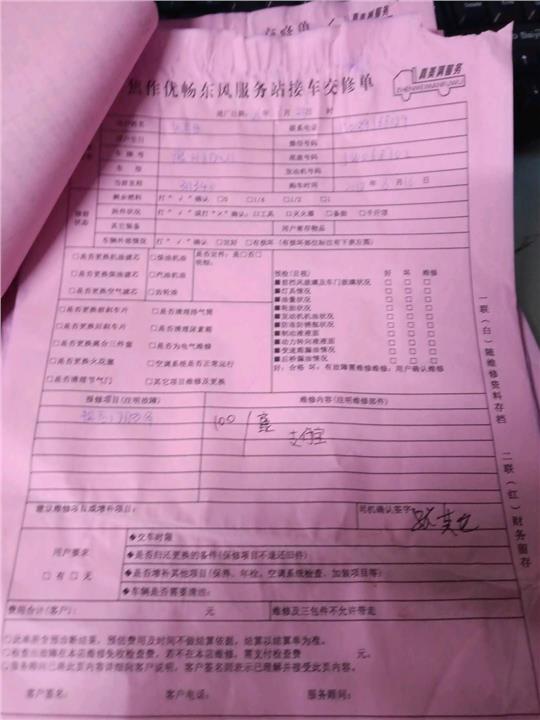 真美满服务
ZHENMEIMANFUWU
焦作优畅东风服务站接车交修单
进厂日期: 年 月 日 时
联系电话
身份号码
车牌号 底盘号码
发动机号码
当前里程 购车时间 年 月 日
剩余燃油 打"√"确认 □0 □1/4 □1/2 □1
附件状况 打"√"或打"×"确认: □工具 □灭火器 □备胎 □千斤顶
其它装备 用户寄存物品
车辆外部情况 打"√"确认 □完好 □有损坏 (有损坏部位标注有下表左图)
□是否更换机油滤芯 □柴油机油
□是否更换柴油滤芯 □汽油机油
□是否更换空气滤芯 □齿轮油
预检(目视) 好 坏 维修
■前挡风玻璃及车门玻璃状况 □ □ □
■灯具情况 □ □ □
■油量状况 □ □ □
■轮胎状况 □ □ □
■发动机机油状况 □ □ □
■防冻防锈液状况 □ □ □
■制动液液面 □ □ □
■动力转向液液面 □ □ □
■变速箱漏油情况 □ □ □
■后桥漏油情况 □ □ □
好: 合格 坏: 有故障需维修维修: 用户确认维修
□是否更换前刹车片 □是否清理排气筒
□是否更换后刹车片 □是否清理尿素箱
□是否更换离合三件套 □是否为电气维修
□是否更换火花塞 □空调系统是否正常运行
□是否清理节气门 □其它项目维修及更换
报修项目(注明故障) 维修内容(注明维修部件)
100
支付宝
建议维修项目或增补项目: 司机确认签字:
用户要求
□有 □无
◆交车时限
◆是否归还更换的备件(保修项目不退还旧件)
◆是否增补其他项目(保养、年检、空调系统检查、加装项目等)
◆车辆是否需要清洁:
费用合计(客户): 元 维修及三包件不允许带走
○此单所含预诊断结果, 预估费用及时间不做结算依据, 结算以结算单为准。
○检查出故障在本店维修免收检查费, 若不在本店维修, 需支付检查费 元。
○服务顾问已乘此页内容详细向客户说明, 客户签名则表示已理解并接受此页内容。
客户签名: 客户电话: 服务顾问:
一联(白)随维修资料存档
二联(红)财务留存